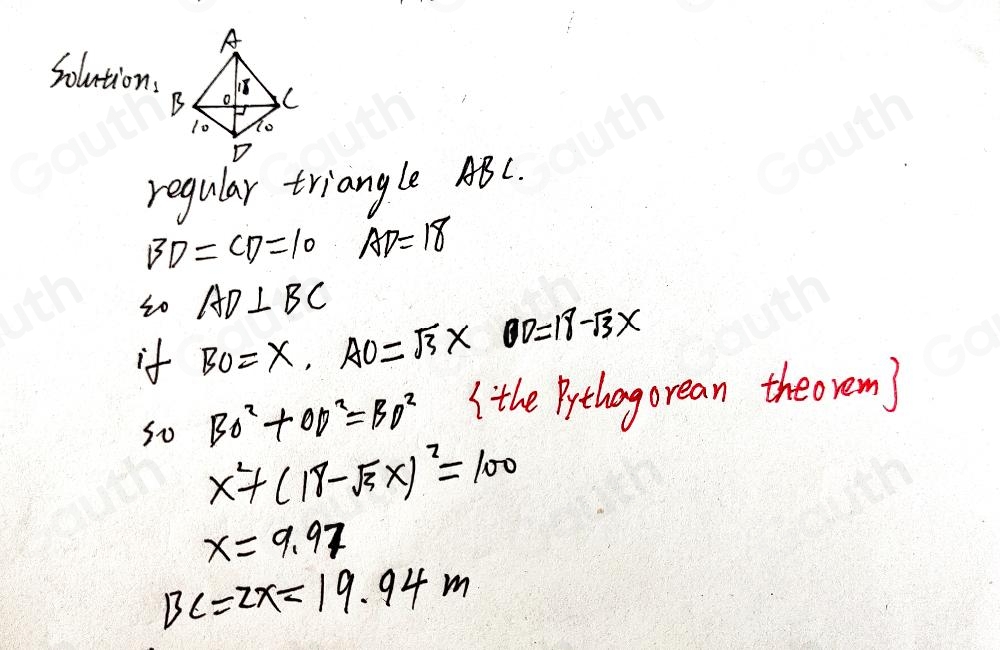 Solution:
A
18
B O C
10 10
D
regular triangle ABC.
BD = CD = 10 AD = 18
so AD ⊥ BC
if BO = x, AO = √3 x OD = 18 - √3 x
so BO² + OD² = BD² {the Pythagorean theorem}
x² + (18 - √3 x)² = 100
x = 9.97
BC = 2x = 19.94 m